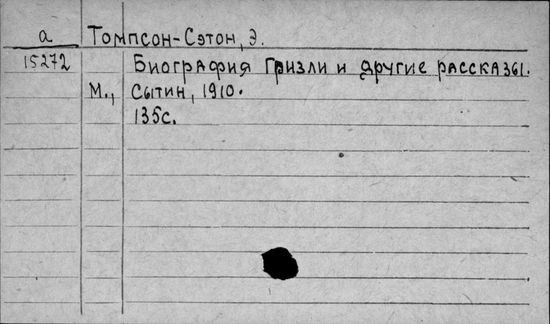 а Томпсон-Сэтон, Э.
15272 Биография Гризли и другие рассказы.
М., Сытин, 1910.
135с.